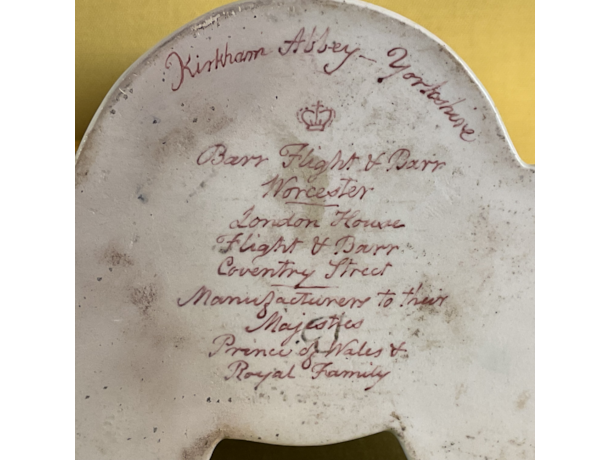 Kirkham Abbey - Yorkshire
Barr Flight & Barr
Worcester
London House
Flight & Barr
Coventry Street
Manufacturers to their
Majesties
Prince of Wales &
Royal Family